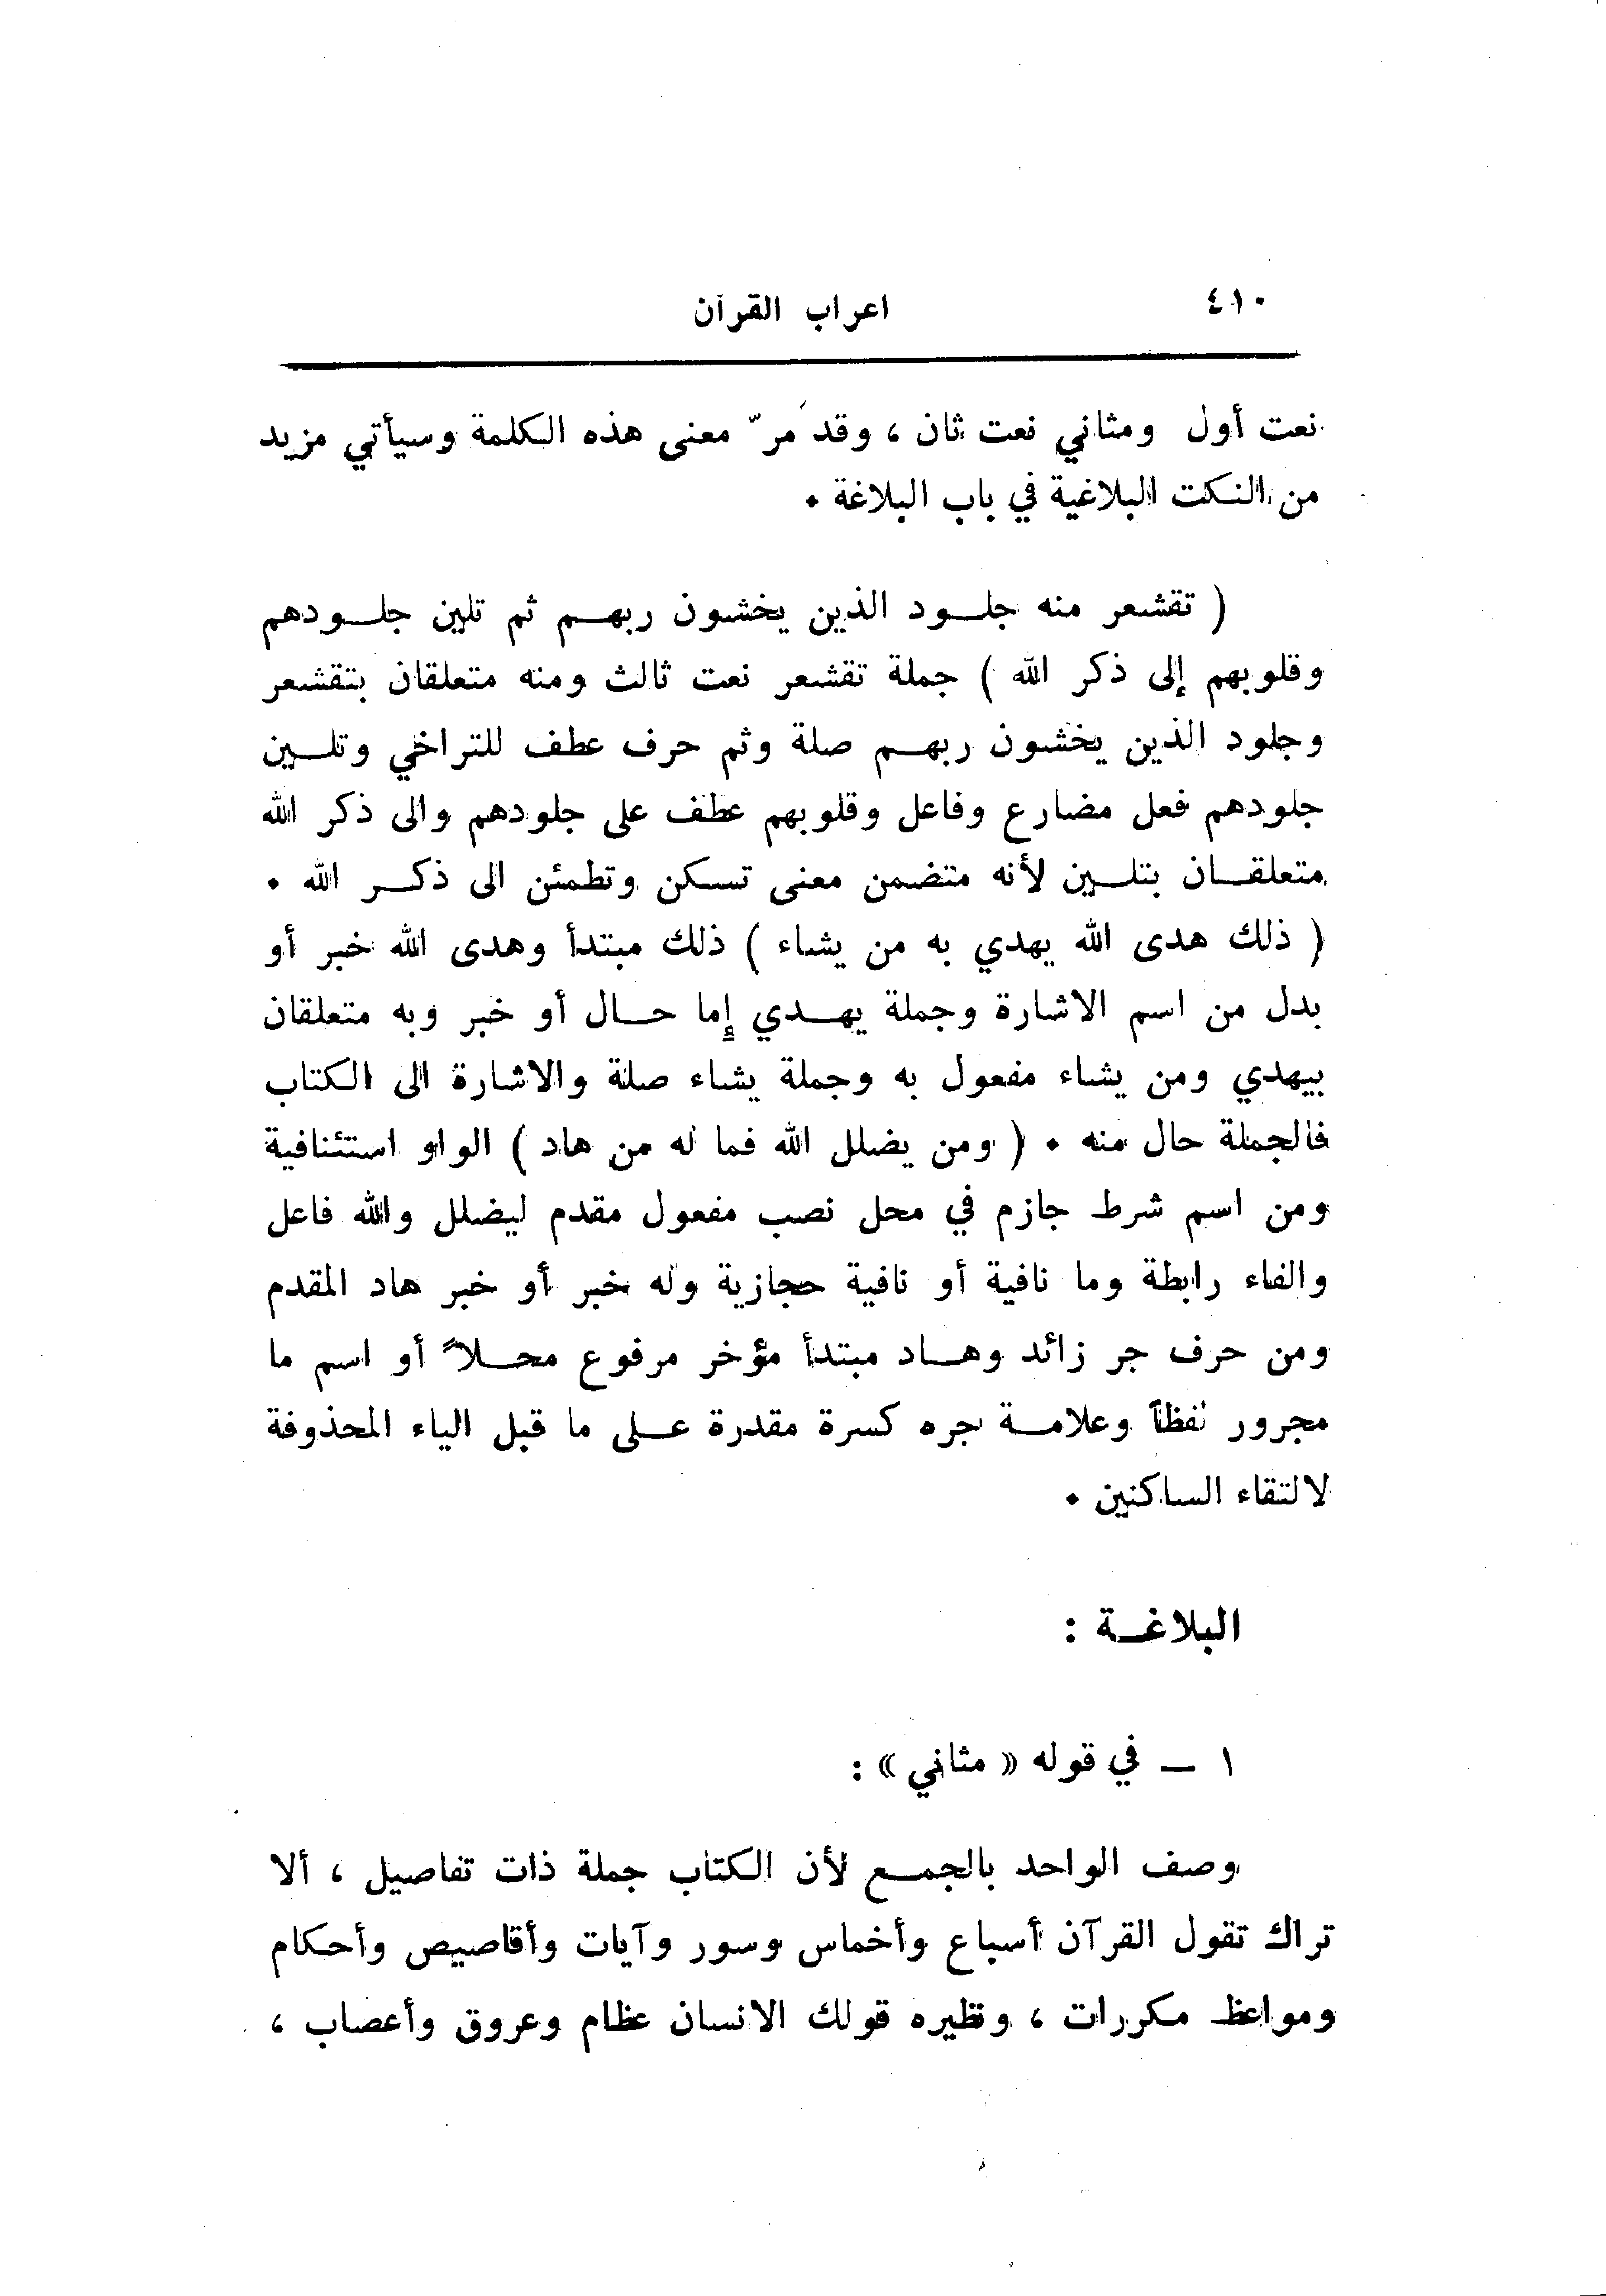 ٤١٠
اعراب القرآن
نعت أول ومثاني نعت ثان ، وقد مرّ معنى هذه الكلمة وسيأتي مزيد
من النكت البلاغية في باب البلاغة .
( تقشعر منه جلود الذين يخشون ربهم ثم تلين جلودهم
وقلوبهم إلى ذكر الله ) جملة تقشعر نعت ثالث ومنه متعلقان بتقشعر
وجلود الذين يخشون ربهم صلة وثم حرف عطف للتراخي وتلين
جلودهم فعل مضارع وفاعل وقلوبهم عطف على جلودهم والى ذكر الله
متعلقان بتلين لأنه متضمن معنى تسكن وتطمئن الى ذكر الله .
( ذلك هدى الله يهدي به من يشاء ) ذلك مبتدأ وهدى الله خبر أو
بدل من اسم الاشارة وجملة يهدي إما حال أو خبر وبه متعلقان
بيهدي ومن يشاء مفعول به وجملة يشاء صلة والاشارة الى الكتاب
فالجملة حال منه . ( ومن يضلل الله فما له من هاد ) الواو استئنافية
ومن اسم شرط جازم في محل نصب مفعول مقدم ليضلل والله فاعل
والفاء رابطة وما نافية أو نافية حجازية وله خبر أو خبر هاد المقدم
ومن حرف جر زائد وهاد مبتدأ مؤخر مرفوع محلاً أو اسم ما
مجرور لفظاً وعلامة جره كسرة مقدرة على ما قبل الياء المحذوفة
لالتقاء الساكنين .
البلاغة :
١ – في قوله « مثاني » :
وصف الواحد بالجمع لأن الكتاب جملة ذات تفاصيل ، ألا
تراك تقول القرآن أسباع وأخماس وسور وآيات وأقاصيص وأحكام
ومواعظ مكررات ، ونظيره قولك الانسان عظام وعروق وأعصاب ،